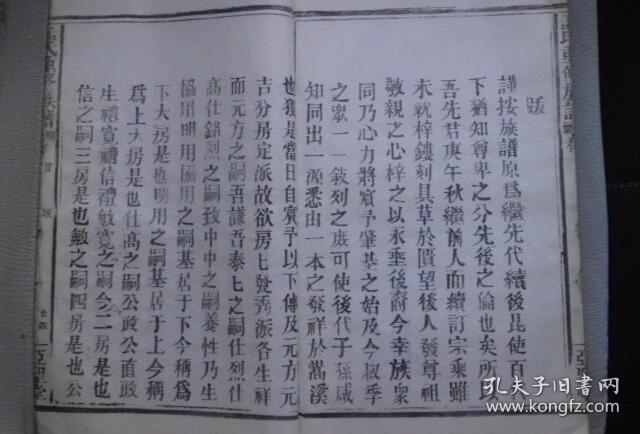 跋
謹按族譜原爲繼先代續後昆使百世
下猶知尊卑之分先後之倫也矣所以
吾先君庚午秋繼前人而續訂宗乘雖
未就梓鏤刻具草於匱望後人發尊祖
敬親之心梓之以永垂後裔今幸族衆
同乃心力將賓予肇基之始及今叔季
之衆一一敘刻之庶可使後代子孫咸
知同出一源悉由一本之發祥於嵩溪
也猗是當日自賓予以下傳及元方元
吉分房定派故欲房七發秀派各生祥
而元方之嗣吾謙吾泰七之嗣仕烈仕
高仕銘烈之嗣致中中之嗣養性乃生
協用明用協用之嗣基居于下今稱爲
下大房是也明用之嗣基居于上今稱
爲上大房是也仕高之嗣公政公直政
生禮寬禮信禮敏寬之嗣今二房是也
信之嗣三房是也敏之嗣四房是也公
氏重修族譜
孔夫子旧书网
book.kongfz.com